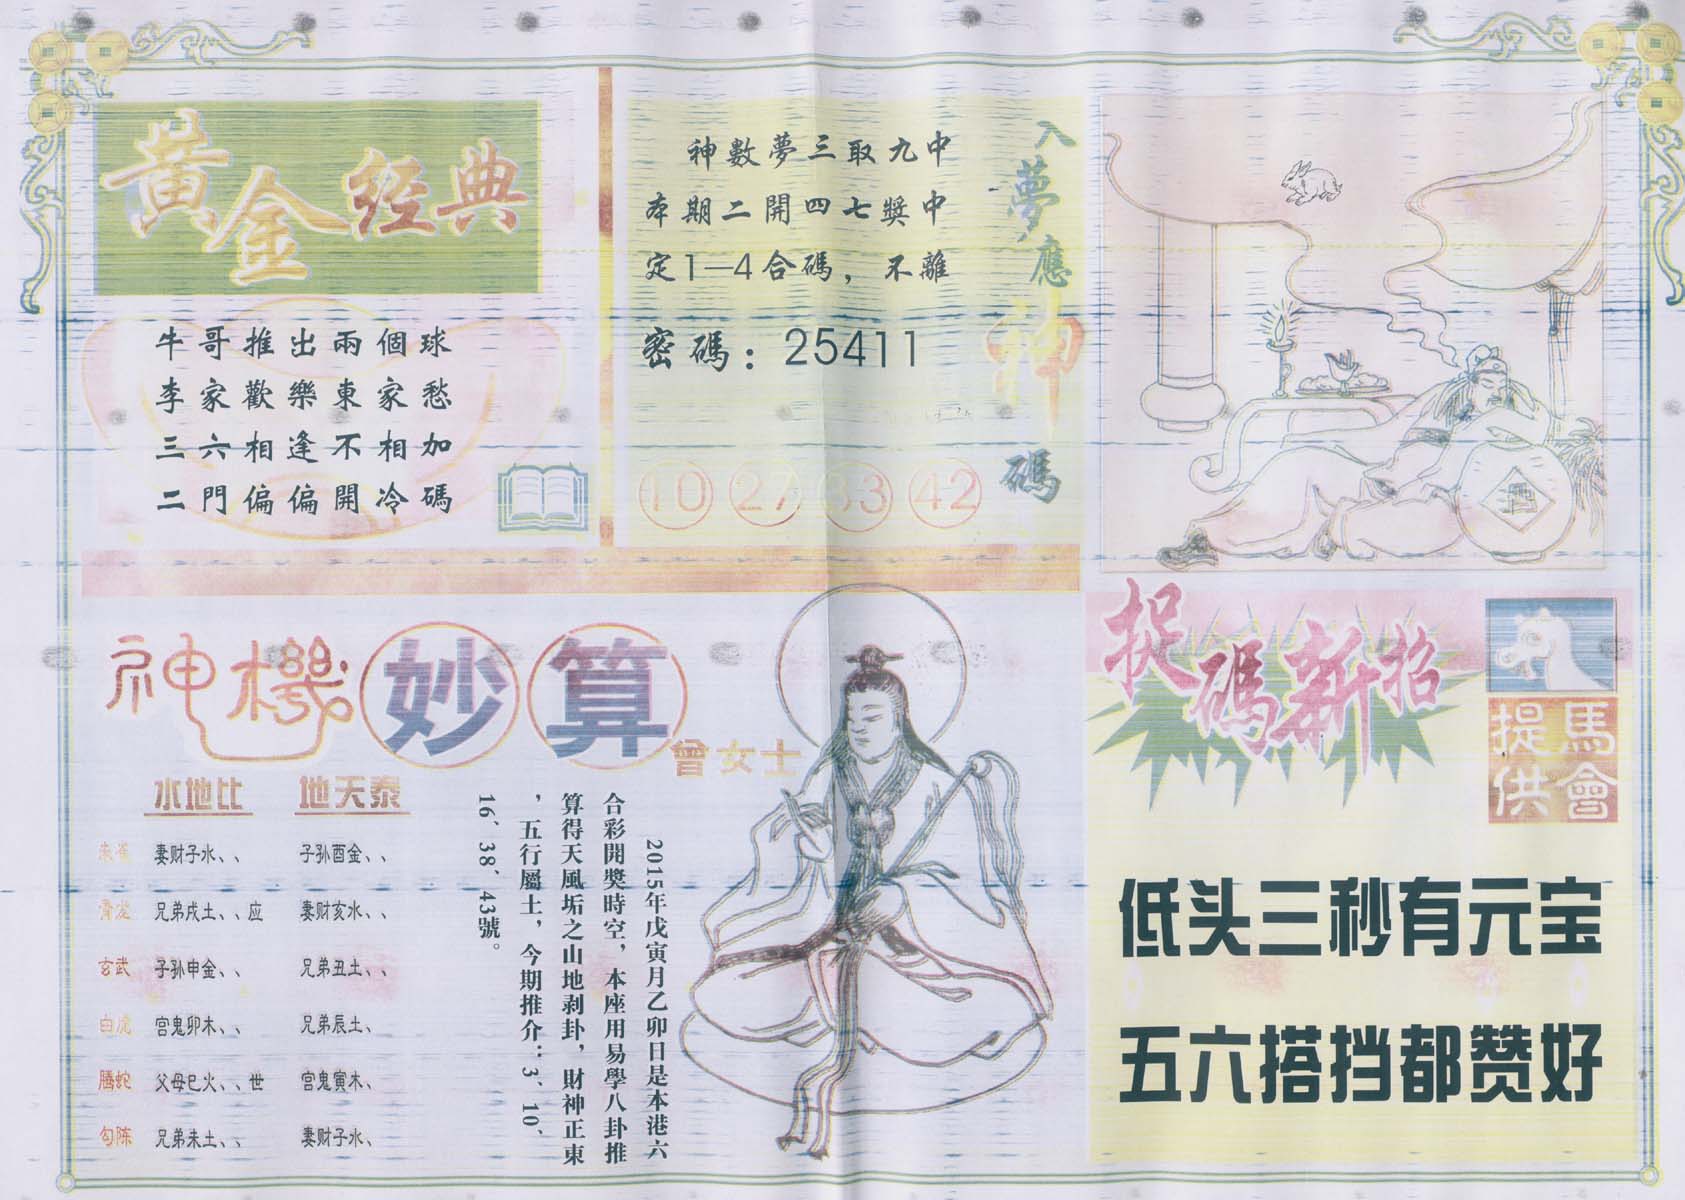 黃金经典
牛哥推出兩個球
李家歡樂東家愁
三六相逢不相加
二門偏偏開冷碼
入夢應神碼
神數夢三取九中
本期二開四七獎中
定1—4合碼，不離
密碼：25411
10 27 33 42
神機妙算
曾女士
水地比 地天泰
朱雀 妻财子水、、 子孙酉金、、
青龙 兄弟戌土、、应 妻财亥水、、
玄武 子孙申金、、 兄弟丑土、、
白虎 宫鬼卯木、、 兄弟辰土、
腾蛇 父母巳火、、世 宫鬼寅木、
勾陈 兄弟未土、、 妻财子水、
2015年戊寅月乙卯日是本港六
合彩開獎時空，本座用易學八卦推
算得天風垢之山地剥卦，財神正東
，五行屬土，今期推介：3、10、
16、38、43號。
捉碼新招
馬會提供
低头三秒有元宝
五六搭挡都赞好